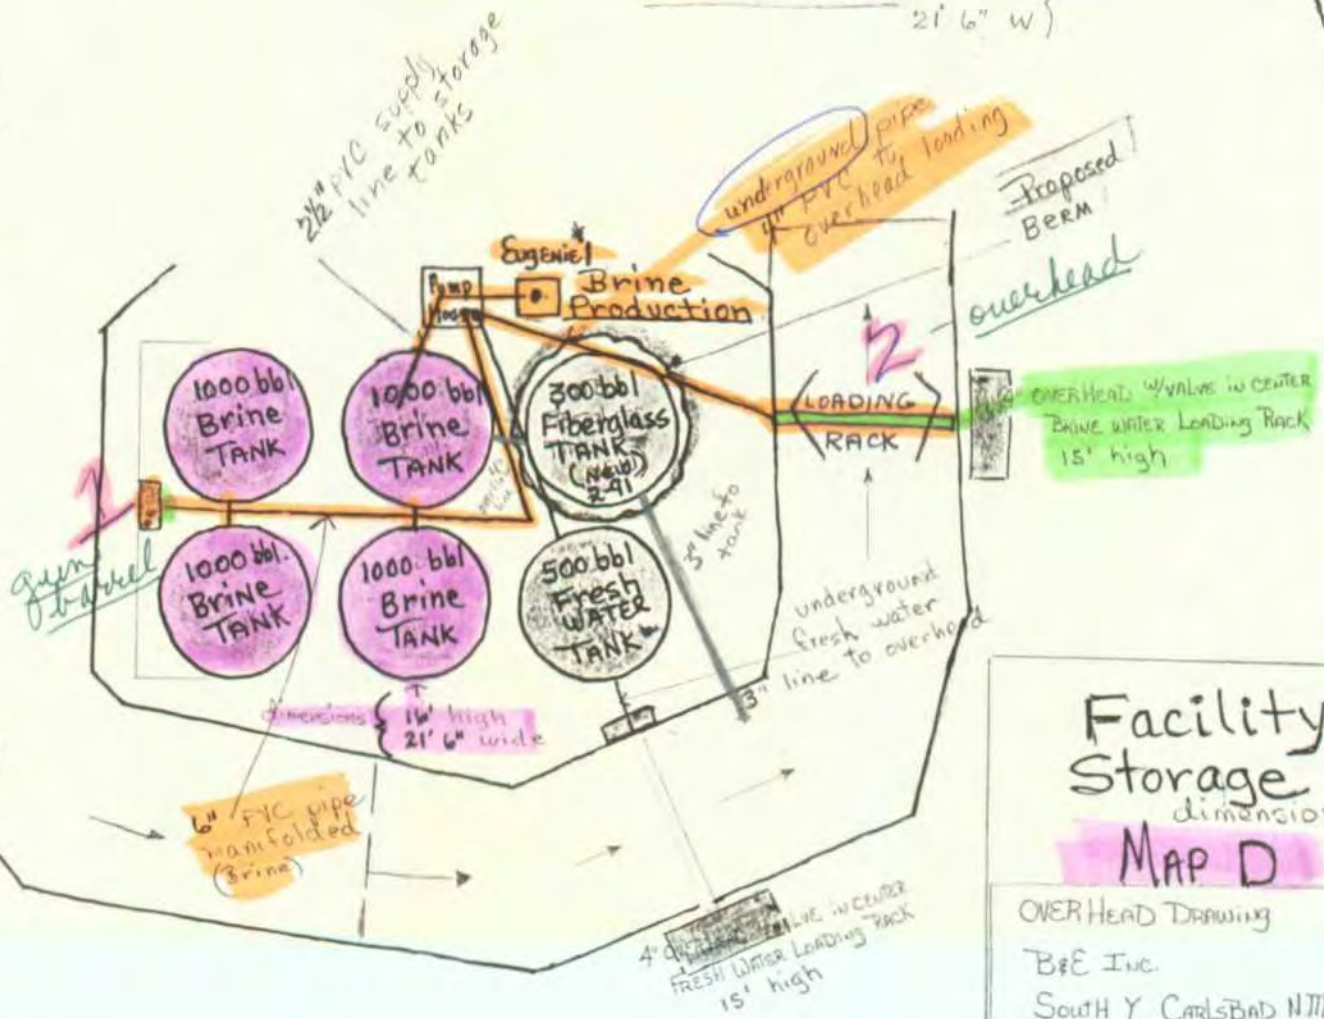 21' 6" W)
2 1/2" PVC supply
line to storage
tanks
underground pipe
4" PVC to
overhead loading
Proposed
BERM
overhead
Eugenie #1
Brine
Production
Pump
House
1000 bbl
Brine
TANK
1000 bbl
Brine
TANK
300 bbl
Fiberglass
TANK
(New)
2-91
2
LOADING
RACK
OVERHEAD W/VALVE IN CENTER
BRINE WATER LOADING RACK
15' high
1
green
barrel
1000 bbl.
BRINE
TANK
1000 bbl
Brine
TANK
500 bbl
Fresh
WATER
TANK
line
3" line to
tank
underground
fresh water
3" line to overhead
dimensions { 16' high
21' 6" wide
6" PVC pipe
manifolded
(Brine)
4" VALVE IN CENTER
FRESH WATER LOADING RACK
15' high
Facility
Storage
dimension
MAP D
OVERHEAD DRAWING
B&E INC.
SOUTH Y CARLSBAD NM